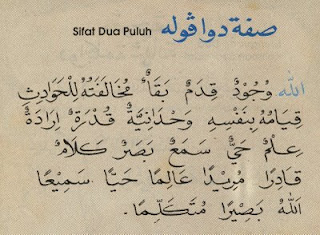 صفة دوا ڤوله
Sifat Dua Puluh
الله وُجُوْدٌ قِدَمٌ بَقَاءٌ مُخَالَفَتُهُ لِلْحَوَادِثِ
قِيَامُهُ بِنَفْسِهِ وَحْدَانِيَّةٌ قُدْرَةٌ اِرَادَةٌ
عِلْمٌ حَيٌّ سَمَعٌ بَصَرٌ كَلَامٌ
قَادِرًا مُرِيْدًا عَالِمًا حَيًّا سَمِيْعًا
اَللهُ بَصِيْرًا مُتَكَلِّمًا.